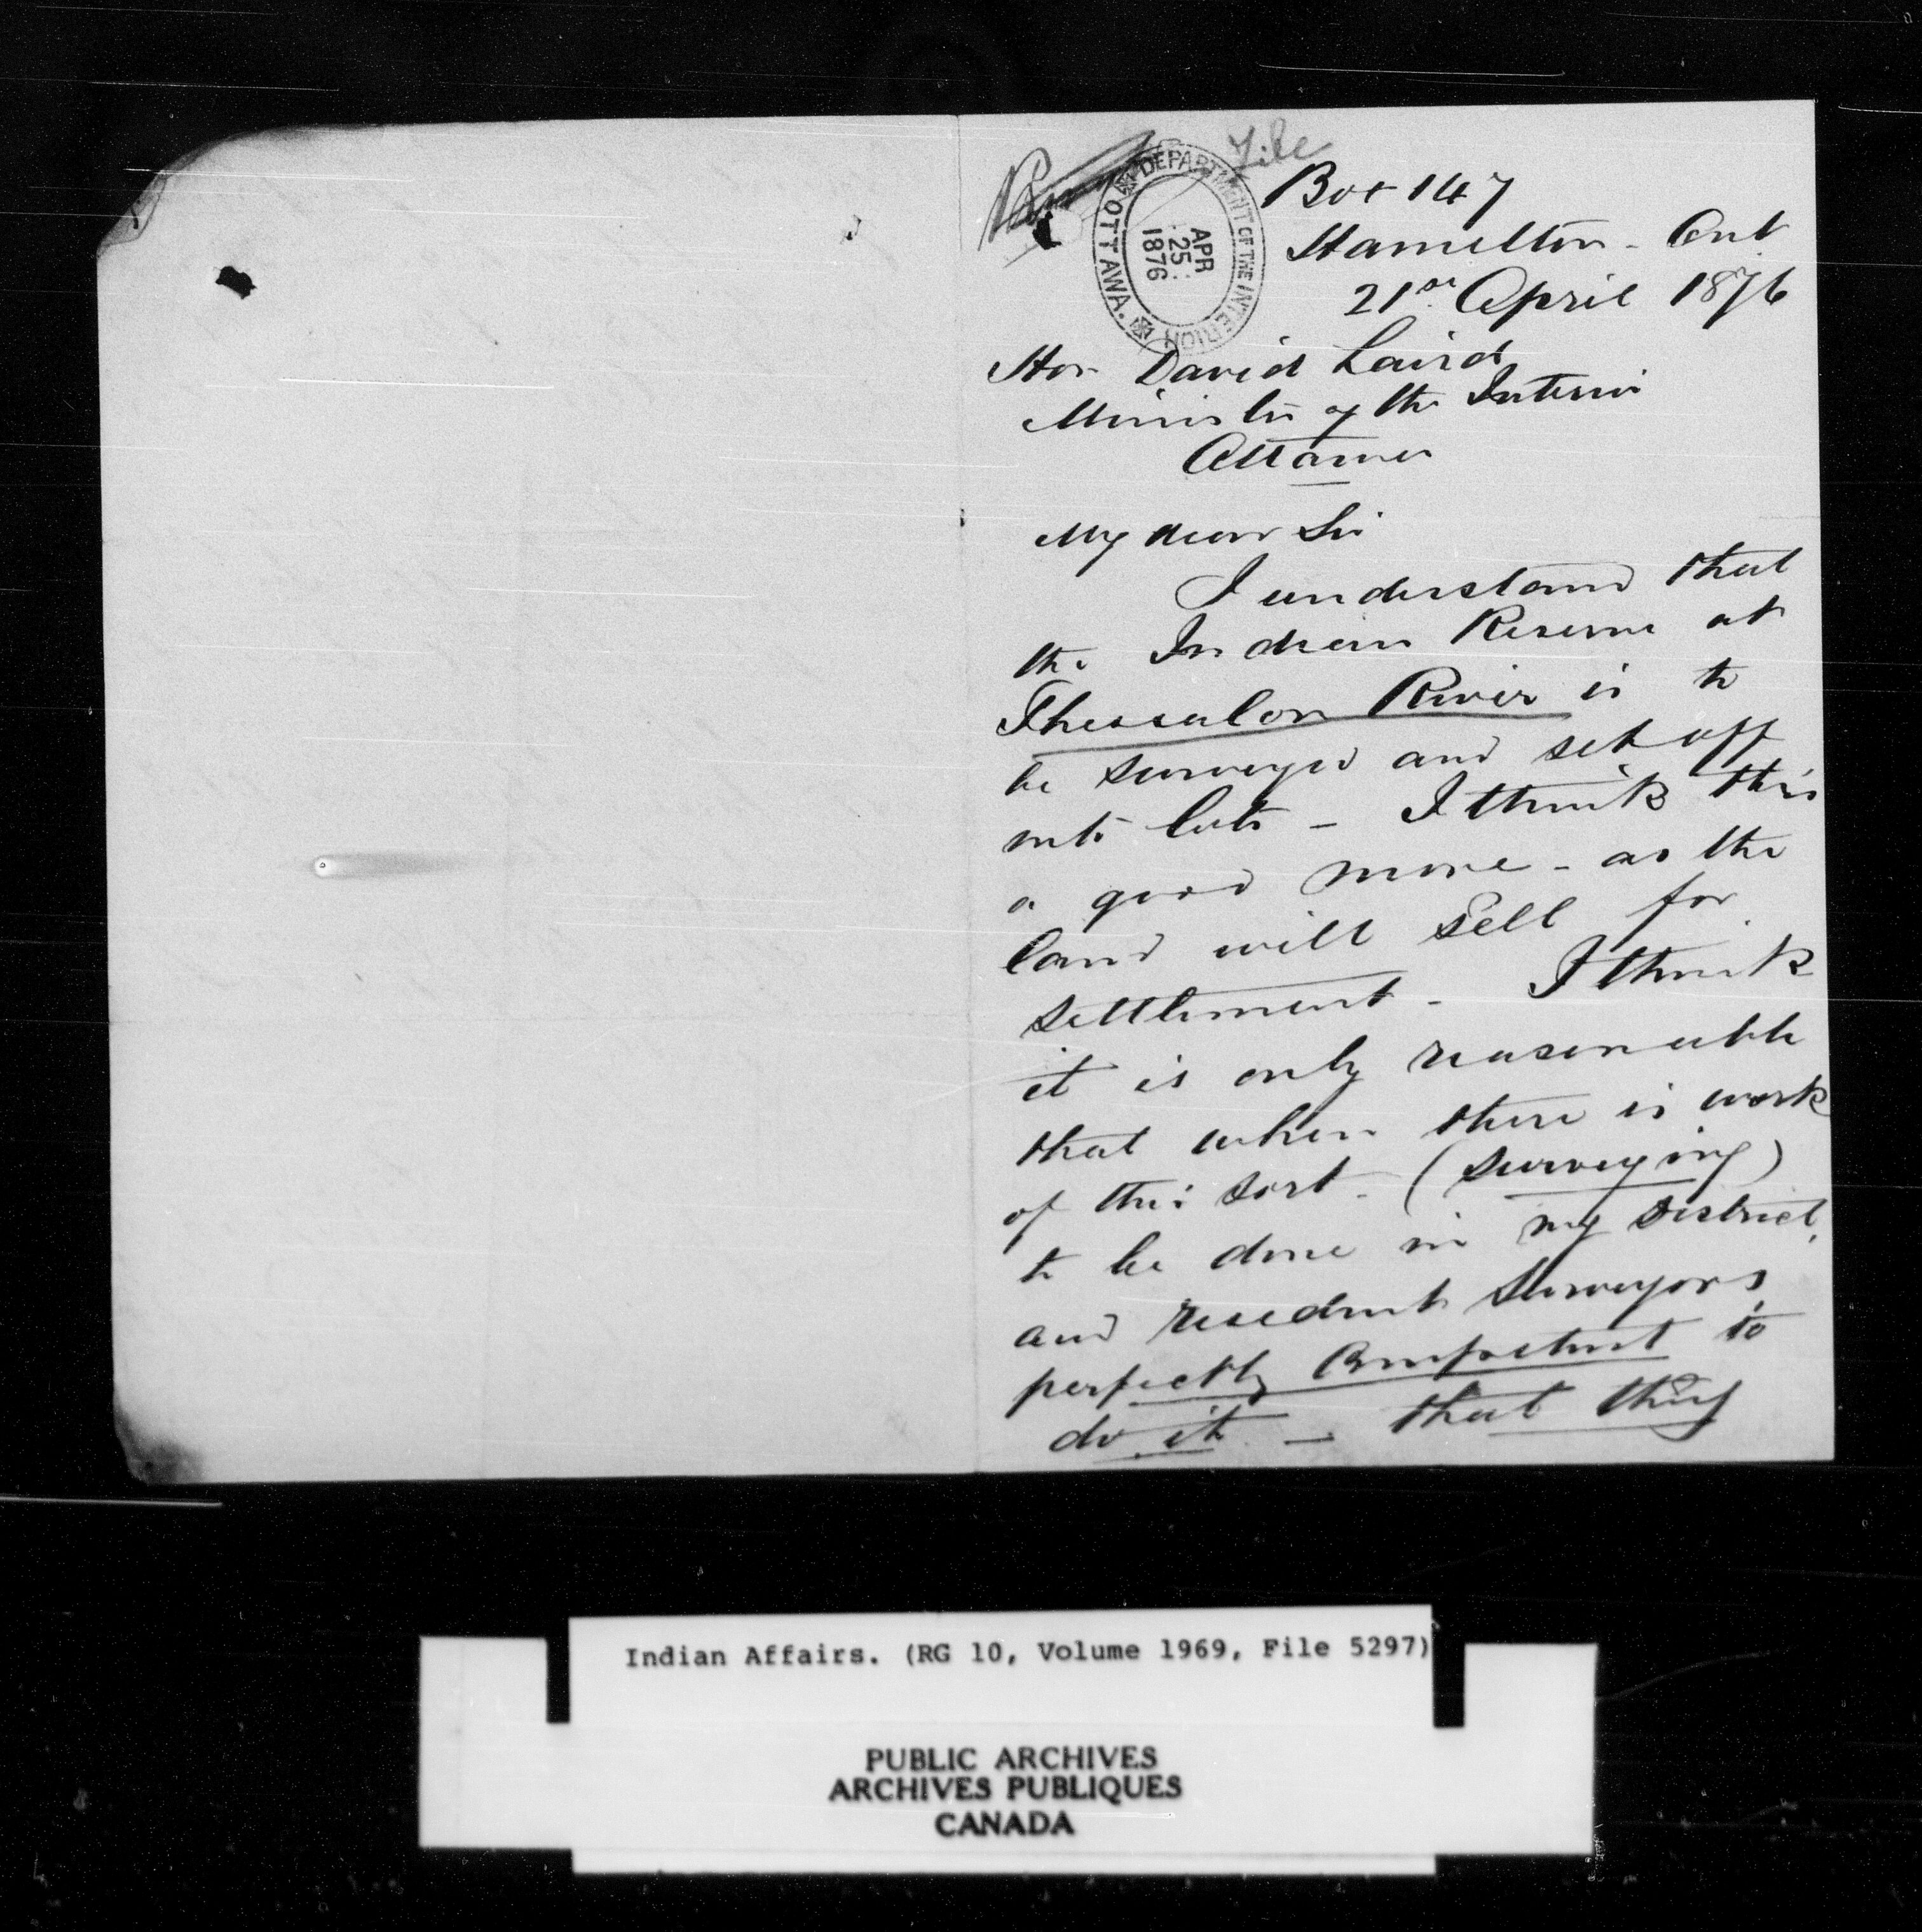 File
DEPARTMENT OF THE INTERIOR
OTTAWA.
APR
25
1876
Box 147
Hamilton - Ont
21st April 1876
Hon David Laird
Minister of the Interior
Ottawa
My dear Sir
I understand that
the Indian Reserve at
Thessalon River is to
be surveyed and set off
into lots - I think this
a good move - as the
land will sell for
settlement - I think
it is only reasonable
that when there is work
of this sort - (surveying)
to be done in my district,
and resident Surveyors
perfectly competent to
do it - that they
Indian Affairs. (RG 10, Volume 1969, File 5297)
PUBLIC ARCHIVES
ARCHIVES PUBLIQUES
CANADA